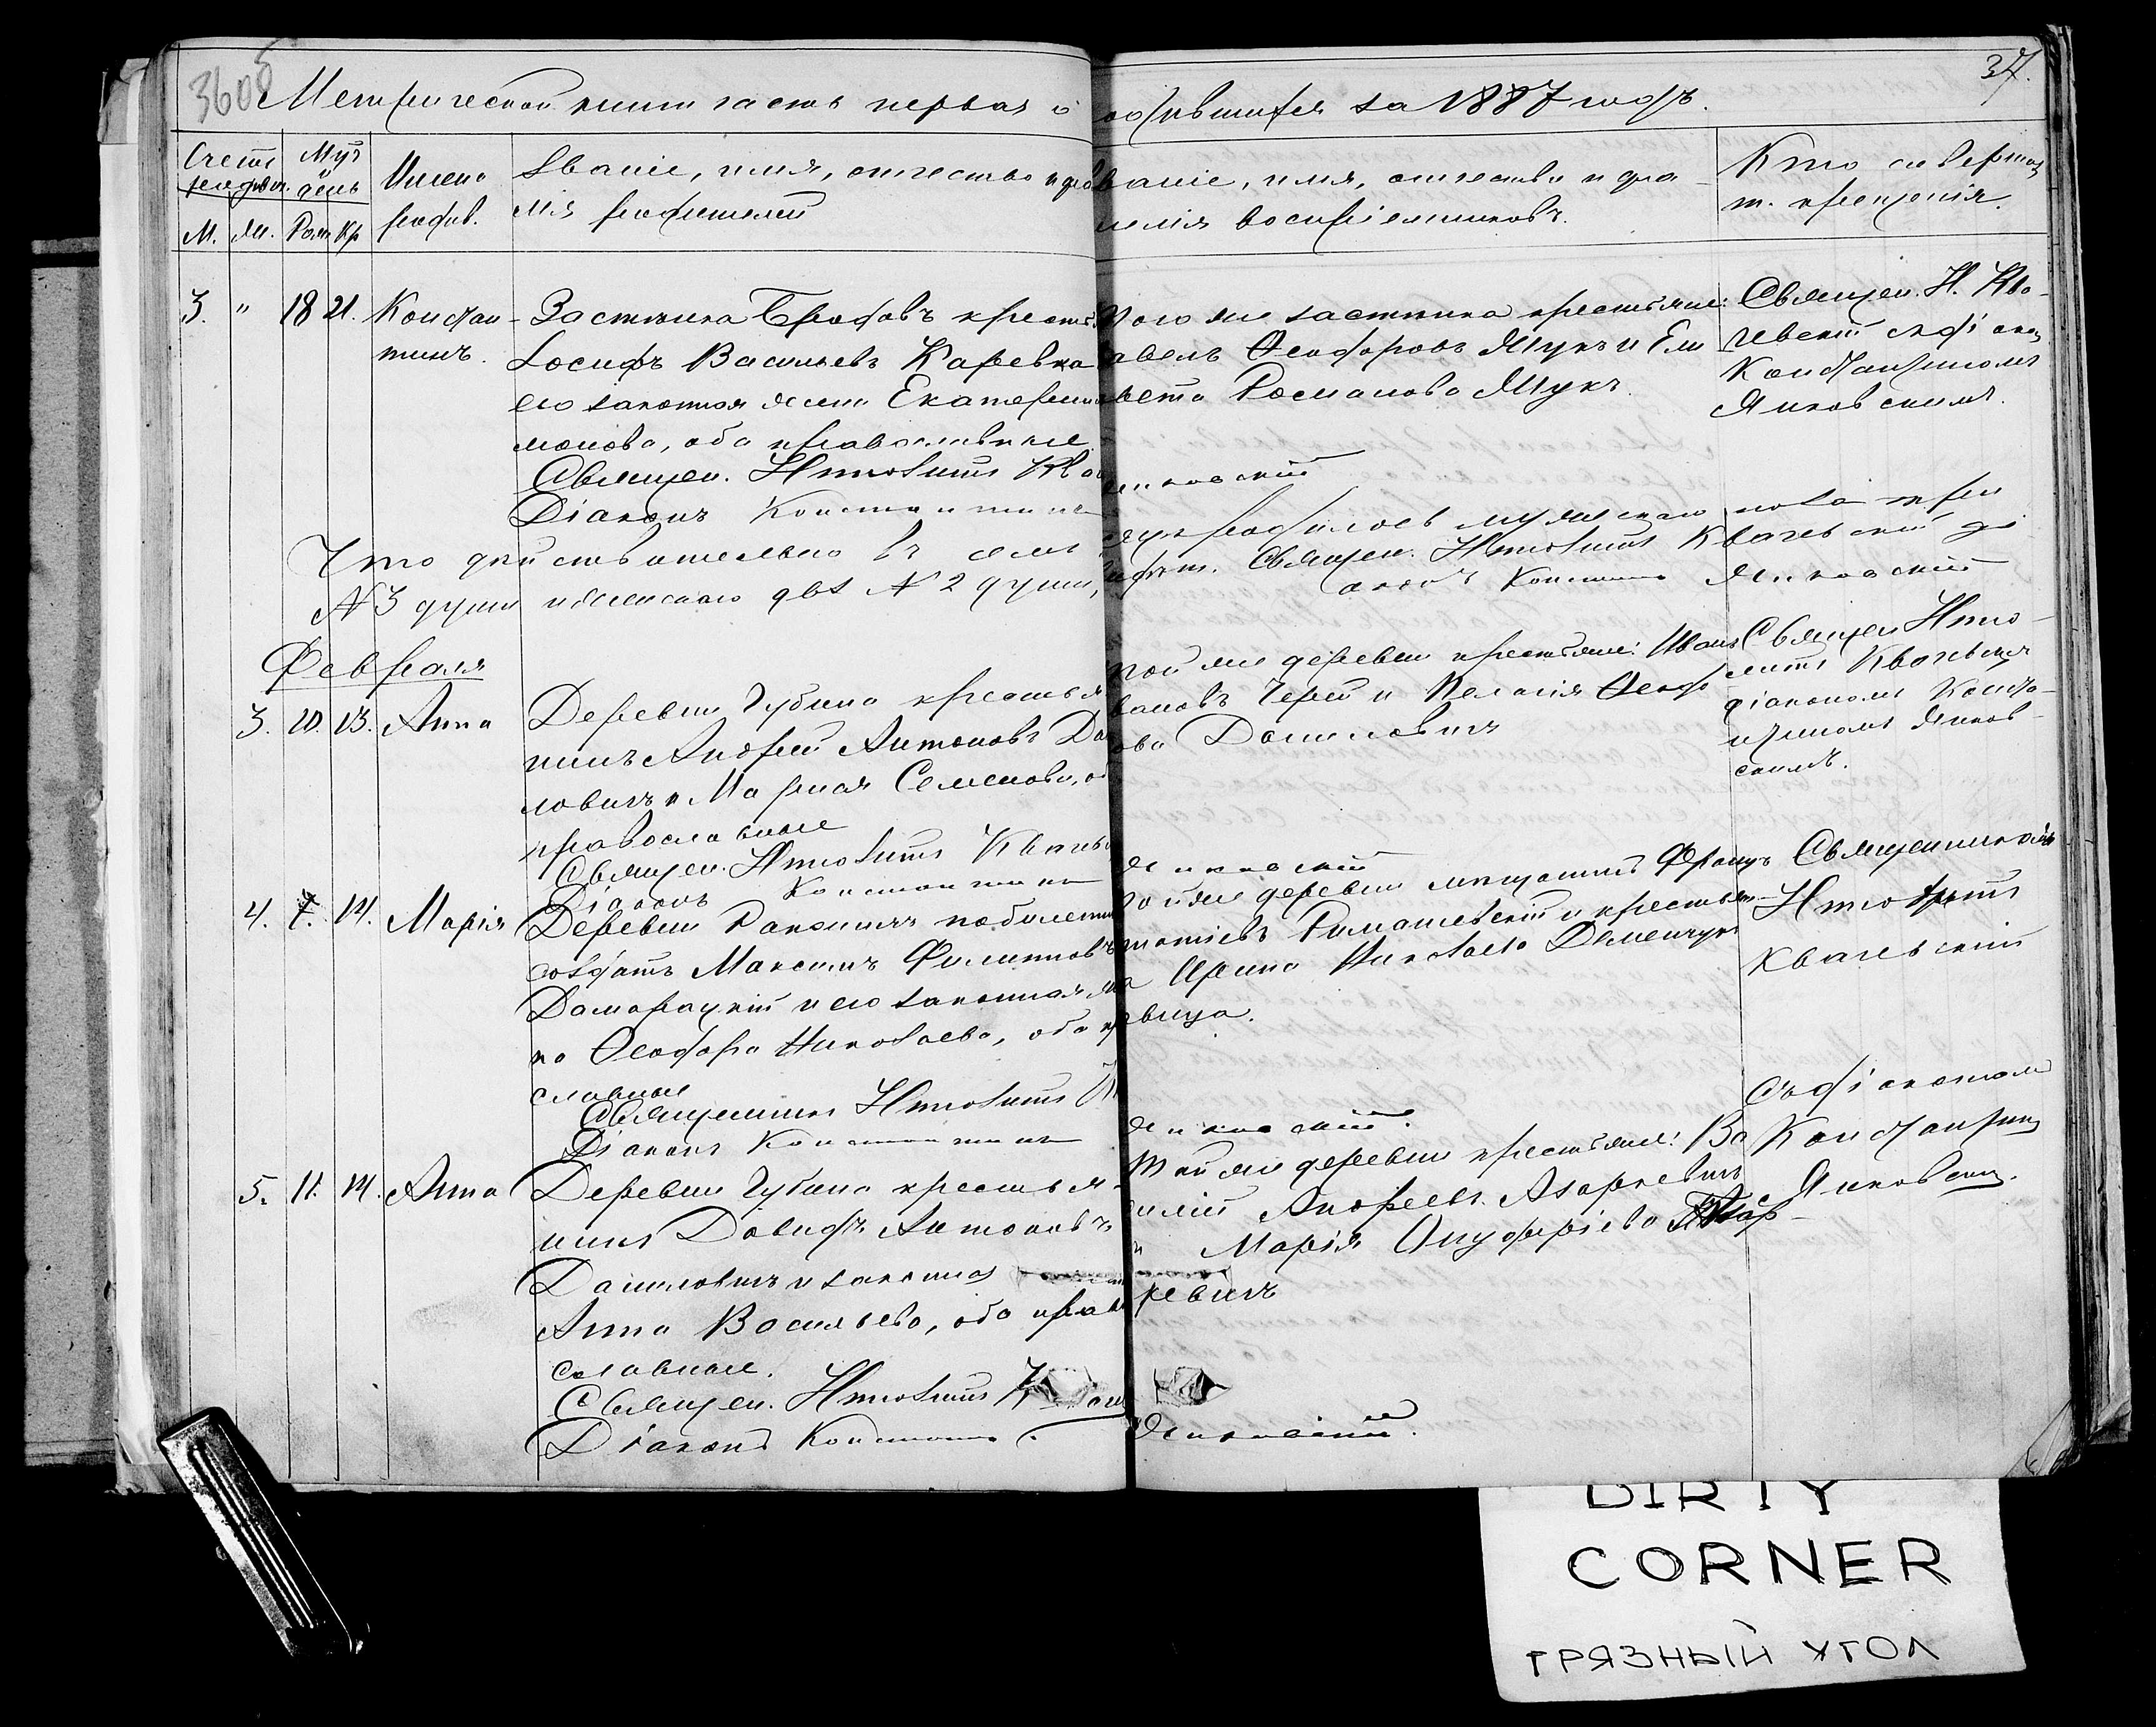 3605
37.
Метрической книги часть первая о родившихся за 1887 годъ.
Счетъ родив.
М. Ж.
Мѣс. и день
Рож Кр
Имена родив.
Званіе, имя, отчество и фамилія родителей
Званіе, имя, отчество и фамилія воспріемниковъ.
Кто совершал т. крещенія
3. " 18 21. Констан-
тинъ.
Застѣнка Бродовъ крестья
Іосифъ Васильевъ Каревка
его законная жена Екатерина
монова, оба православные
Священ. Ипполитъ Ква
Діаконъ Константинъ
того же застѣнка крестьяне:
авелъ Ѳеодоровъ Жукъ и Ели
вета Романова Жукъ.
Янковскій
Священ. И. Ква-
чевскій съ діакон
Константиномъ
Янковскимъ.
Что дѣйствительно въ семъ родилось мужескаго пола три
N 3 души и женскаго двѣ N 2 души, Священ. Ипполитъ Квачевскій ді
аконъ Констан Янковскій
Февраля
3. 10. 13. Анна
Деревни Губина крестья
нинъ Андрей Антоновъ Да
ловичъ и Марѳа Семенова, об
православные
Священ. Ипполитъ Квачевс
Діаконъ Константинъ
той же деревни крестьяне: Иванъ
вановъ Черей и Пелагія Ѳеодо
ова Даниловичъ
Янковскій
Священ Иппо-
литъ Квачевскій
діакономъ Конста-
нтиномъ Янков-
скимъ.
4. 7. 14. Марія
Деревни по билетн
солдатъ Максимъ Филипповъ
Домарацкій и его законная же
на Ѳеодора Николаева, оба пр
славные
Священникъ Ипполитъ К
Діаконъ Константинъ
той же деревни мѣщанинъ Францъ
Игнатіевъ Римашевскій и крестьян
ка Ирина Николаева
евица.
Янковскій.
Священникъ
Ипполитъ
Квачевскій
Съ діакономъ
Константин
Янковским.
5. 11. 14. Анна
Деревни Губина крестья-
нинъ Давидъ Антоновъ
Даниловичъ и законная
Анна Васильева, оба право
славные.
Священ. Ипполитъ К
Діаконъ Константи
Той же деревни крестьяне: Ва
силій Андреевъ Азаркевичъ
и Марія Онуфріева Азар-
кевичъ
Янковскій.
DIRTY
CORNER
ГРЯЗНЫЙ УГОЛ